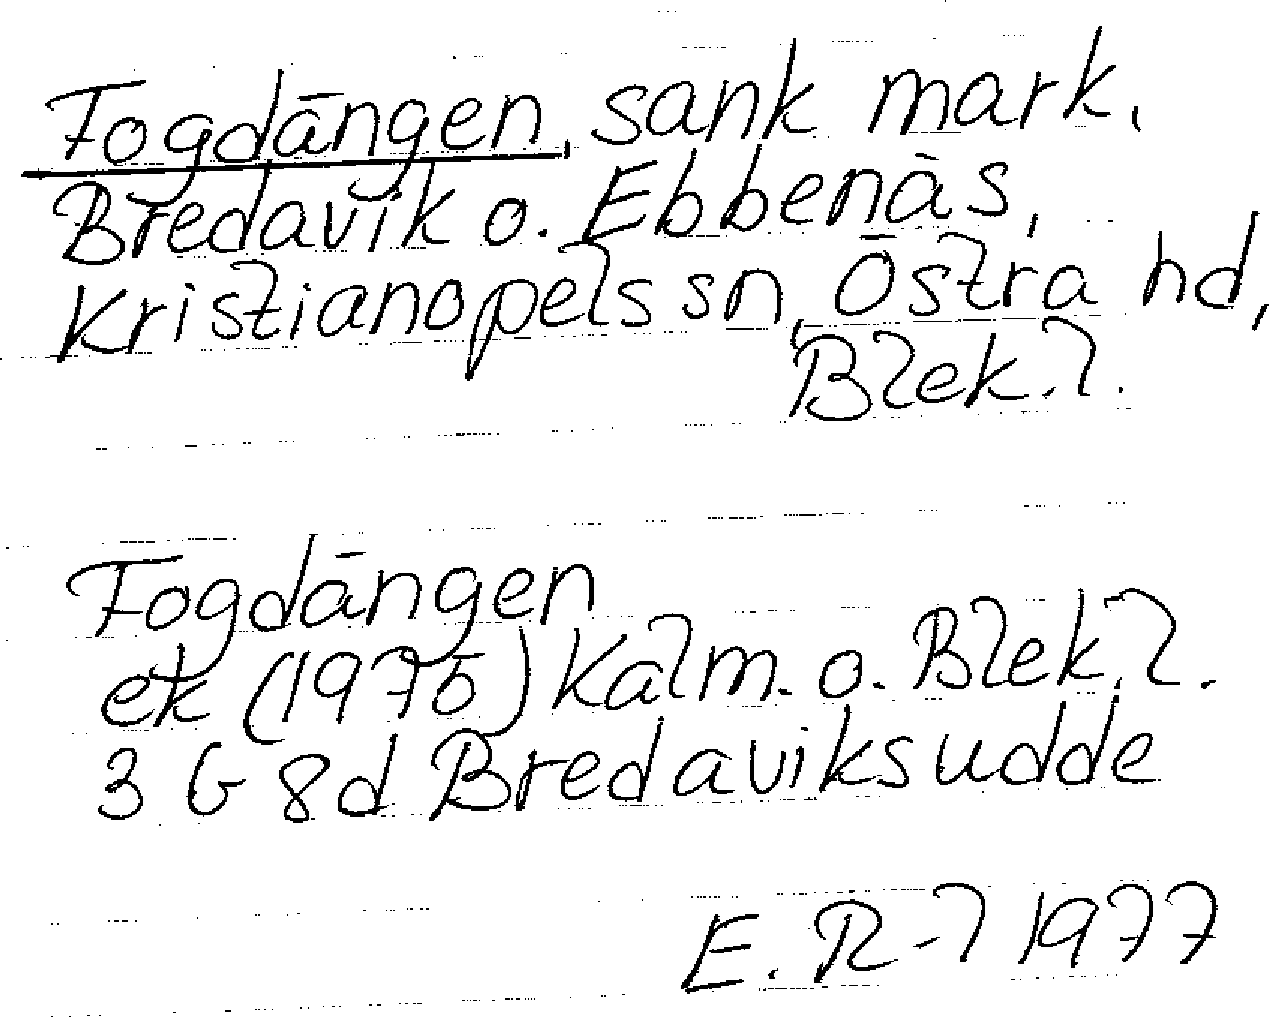 Fogdängen, sank mark,
Bredavik o. Ebbenäs,
Kristianopels sn, Östra hd,
Blek.l.
Fogdängen
ek (1975) Kalm. o. Blek.l.
3 G 8d Bredaviksudde
E. R-l 1977